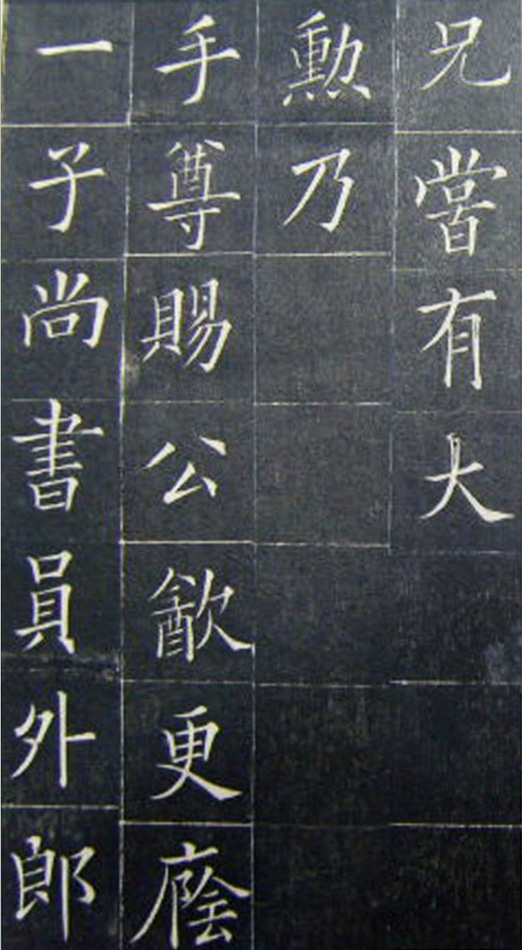 兄嘗有大
勲乃
手尊賜公㱃更廕
一子尚書員外郎